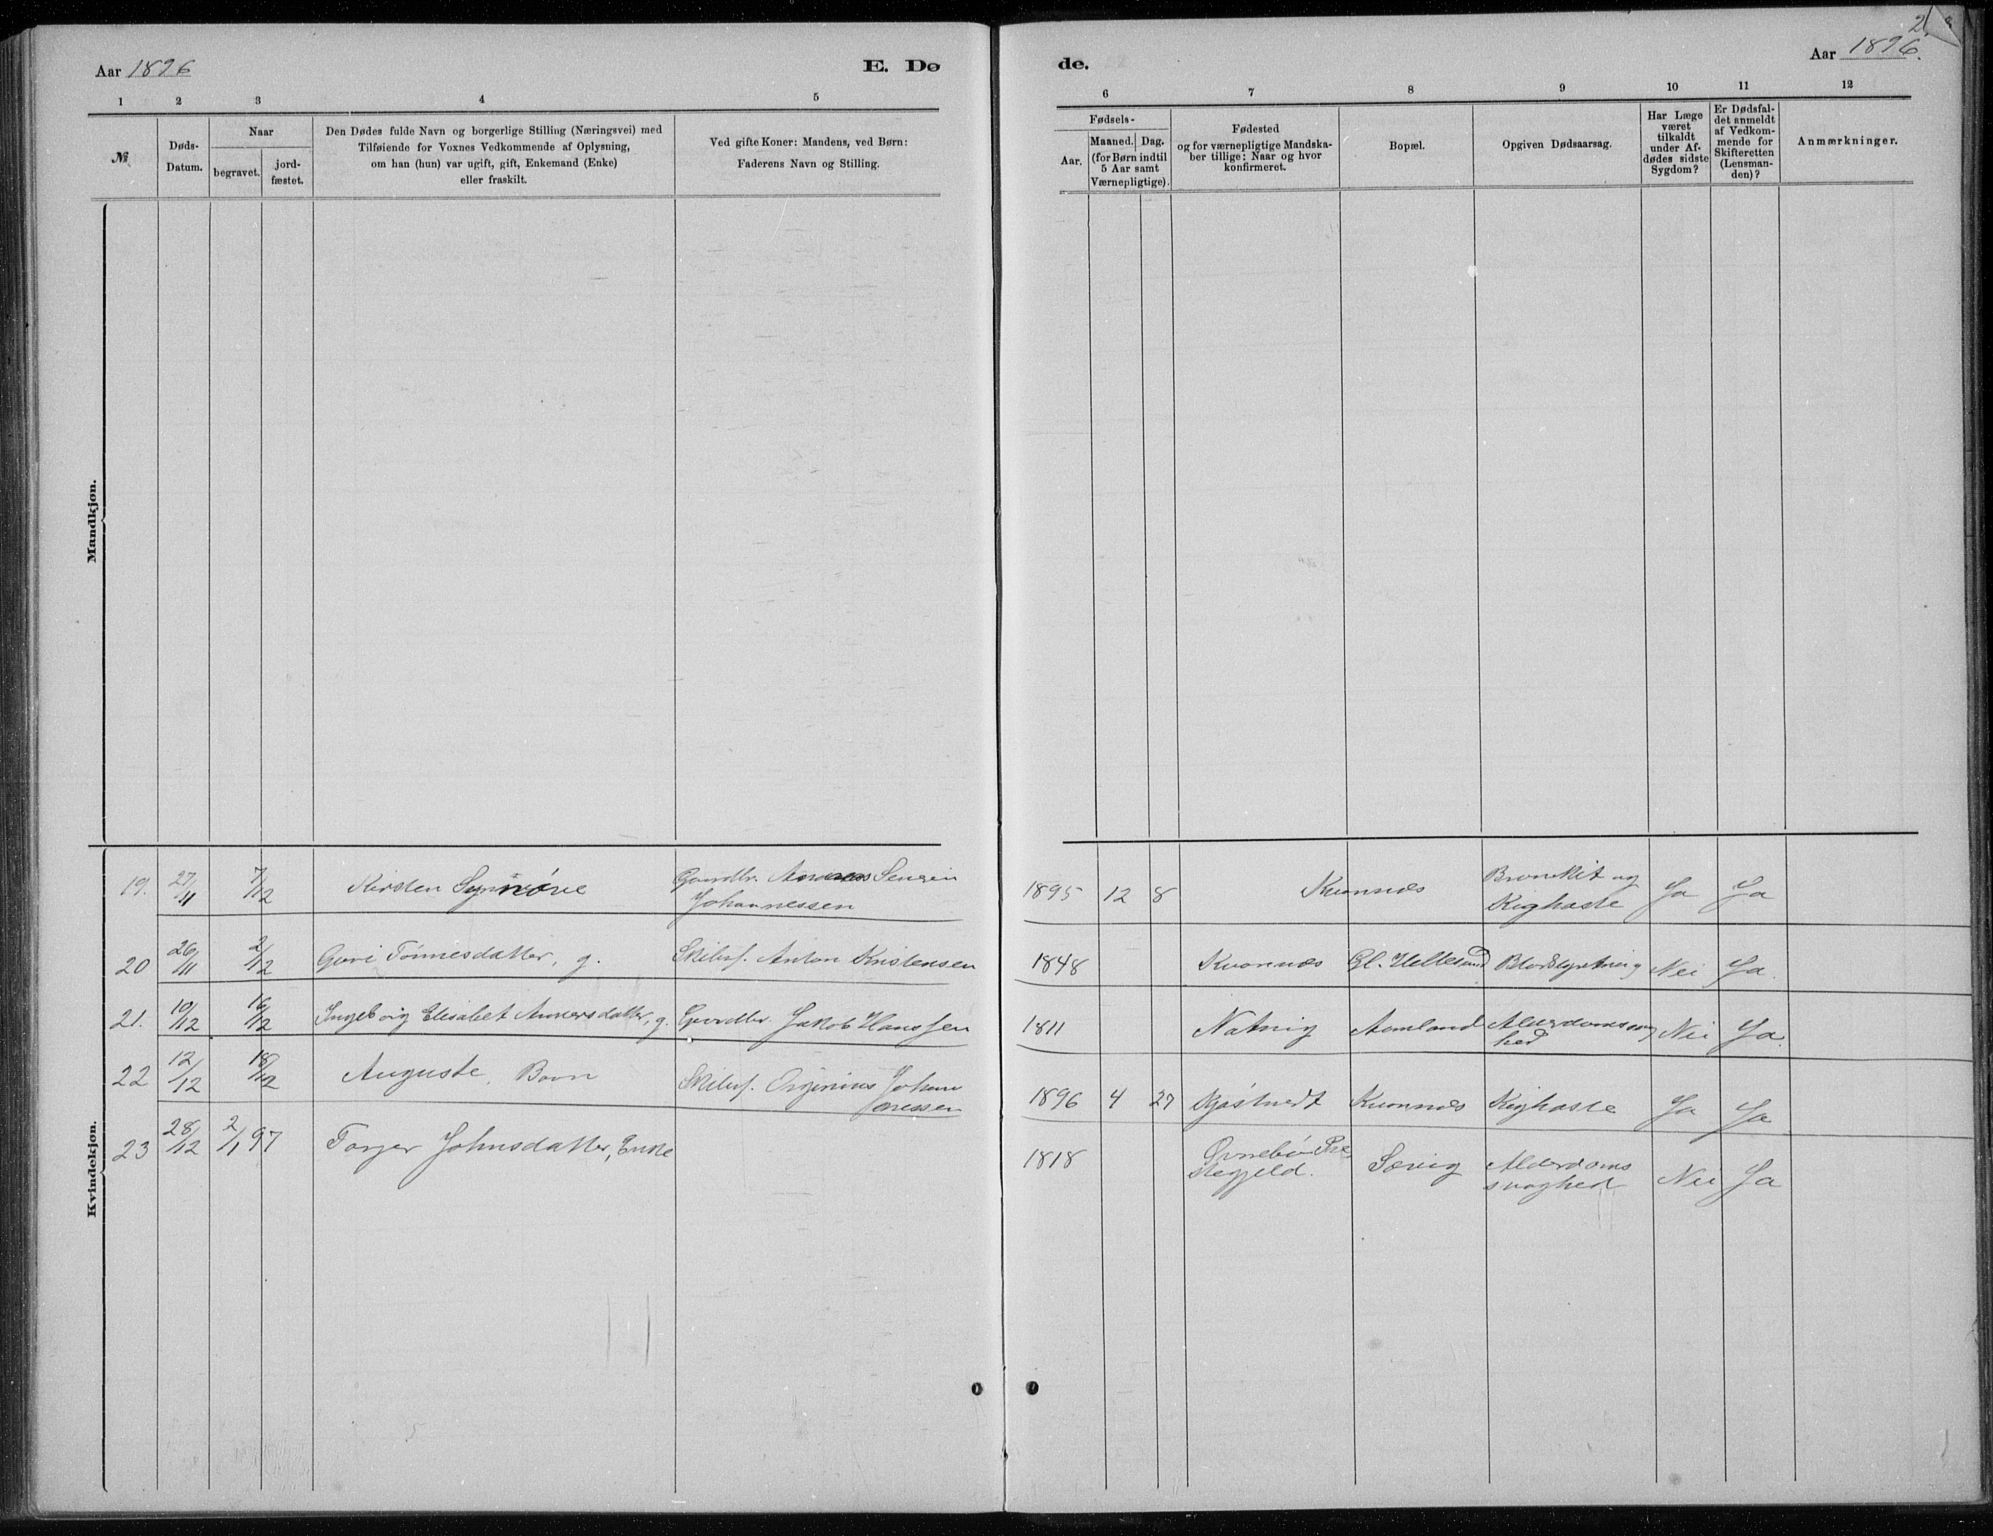 Aar 1896
E. Dø
de.
Aar 1896.
1 2 3 4 5
6 7 8 9 10 11 12
№
Døds-
Datum.
Naar
begravet.
jord-
fæstet.
Den Dødes fulde Navn og borgerlige Stilling (Næringsvei) med
Tilføiende for Voxnes Vedkommende af Oplysning,
om han (hun) var ugift, gift, Enkemand (Enke)
eller fraskilt.
Ved gifte Koner: Mandens, ved Børn:
Faderens Navn og Stilling.
Fødsels-
Aar.
Maaned. Dag.
(for Børn indtil
5 Aar samt
Værnepligtige).
Fødested
og for værnepligtige Mandska-
ber tillige: Naar og hvor
konfirmeret.
Bopæl.
Opgiven Dødsaarsag.
Har Læge
været
tilkaldt
under Af-
dødes sidste
Sygdom?
Er Dødsfal-
det anmeldt
af Vedkom-
mende for
Skifteretten
(Lensman-
den)?
Anmærkninger.
Mandkjøn.
Kvindekjøn.
19. 27/11 7/12 Kirsten Synnøve Gaardbr.
Johannessen
1895 12 8 Kvonnes og Kighoste Ja Ja
20 26/11 2/12 Guri Tønnesdatter, g. Anton Kristensen
1848 Kvonnes Gl. Hellesund Nei Ja.
21. 10/12 16/12 Ingeborg Elisabet g. Gaardbr. Jakob Hanssen
1811 Aamland Nei Ja.
22 12/12 18/12 Auguste, Barn Johan
nessen
1896 4 27 Kvonnes Kighoste Ja Ja
23 28/12 2/1 97 Torjer Johnsdatter, Enke
1818 Øvrebø Præ
stegjeld. Sævig Alderdoms
svaghed Nei Ja